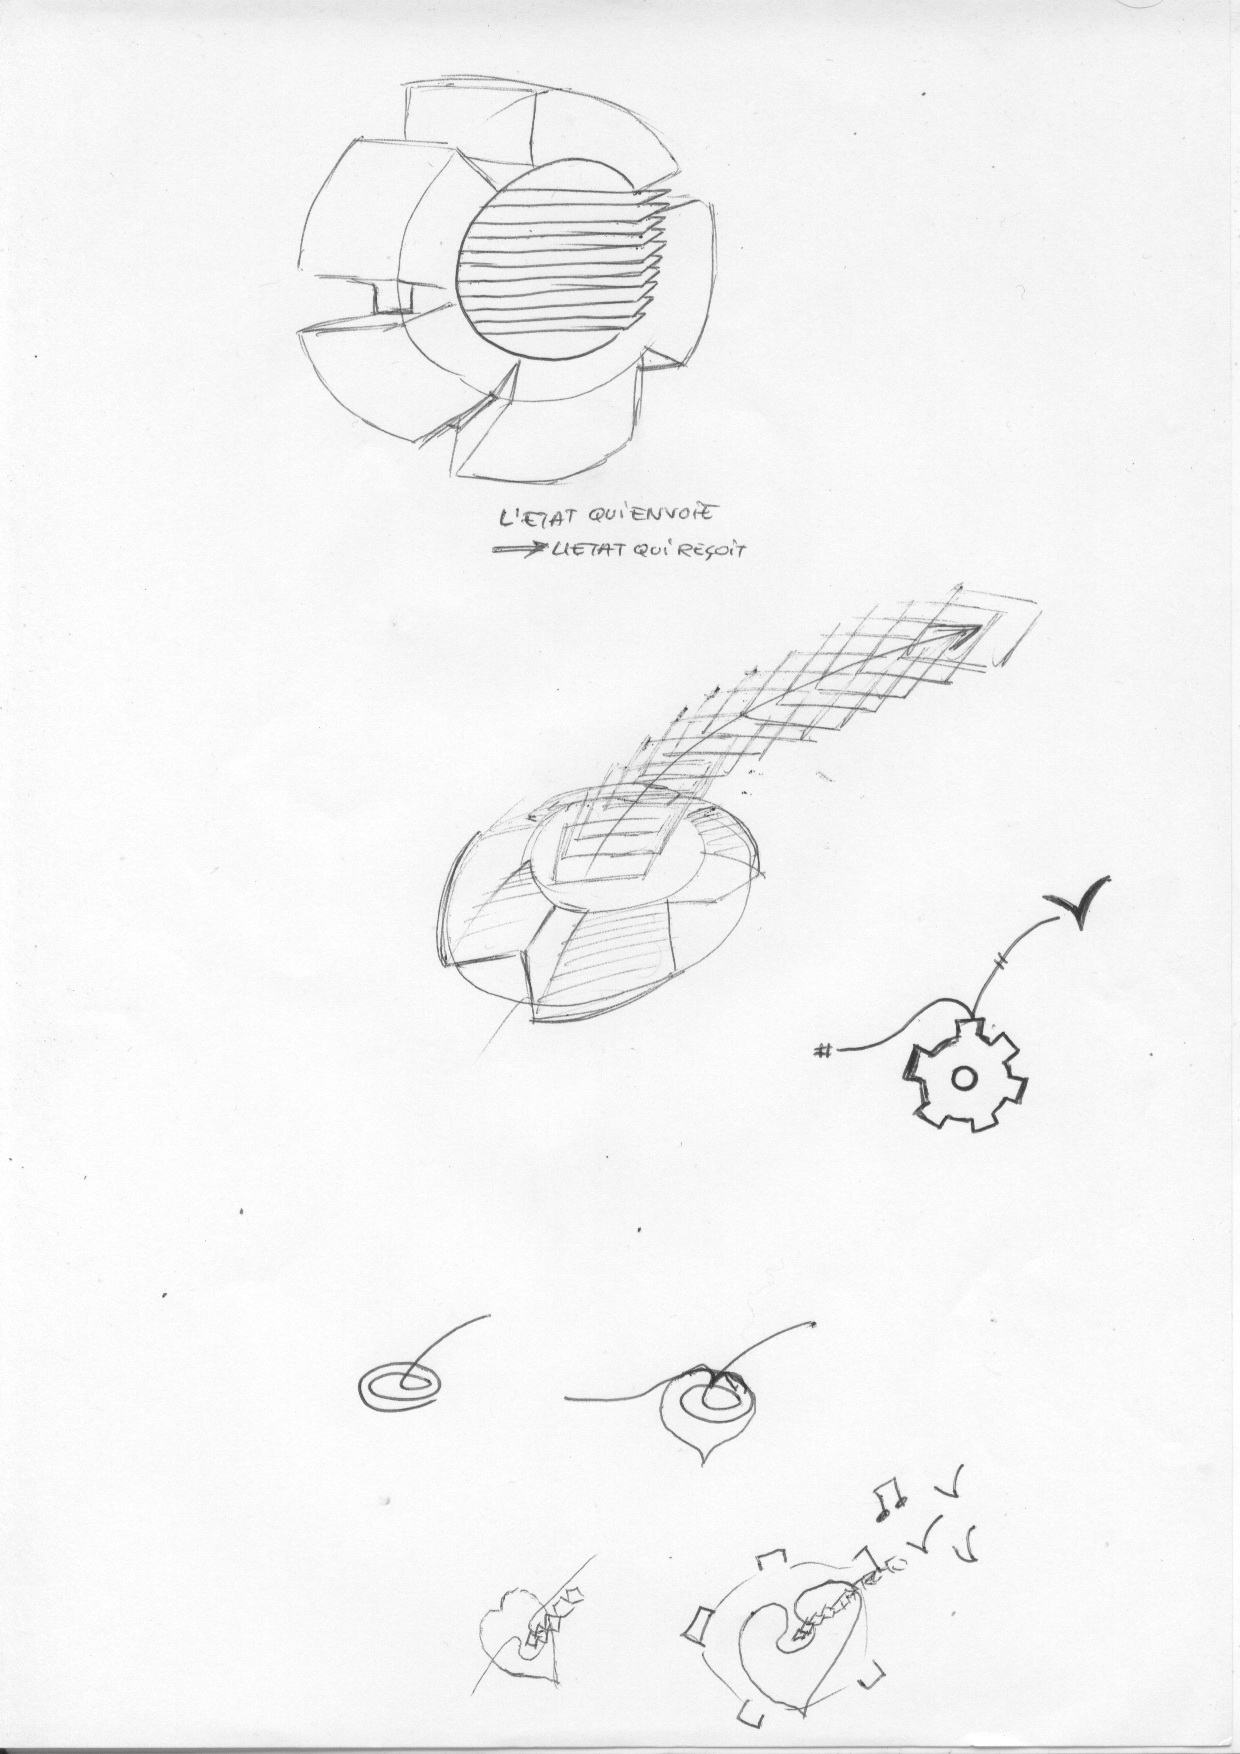 L'ETAT QUI ENVOIE
→ L'ETAT QUI REÇOIT
#